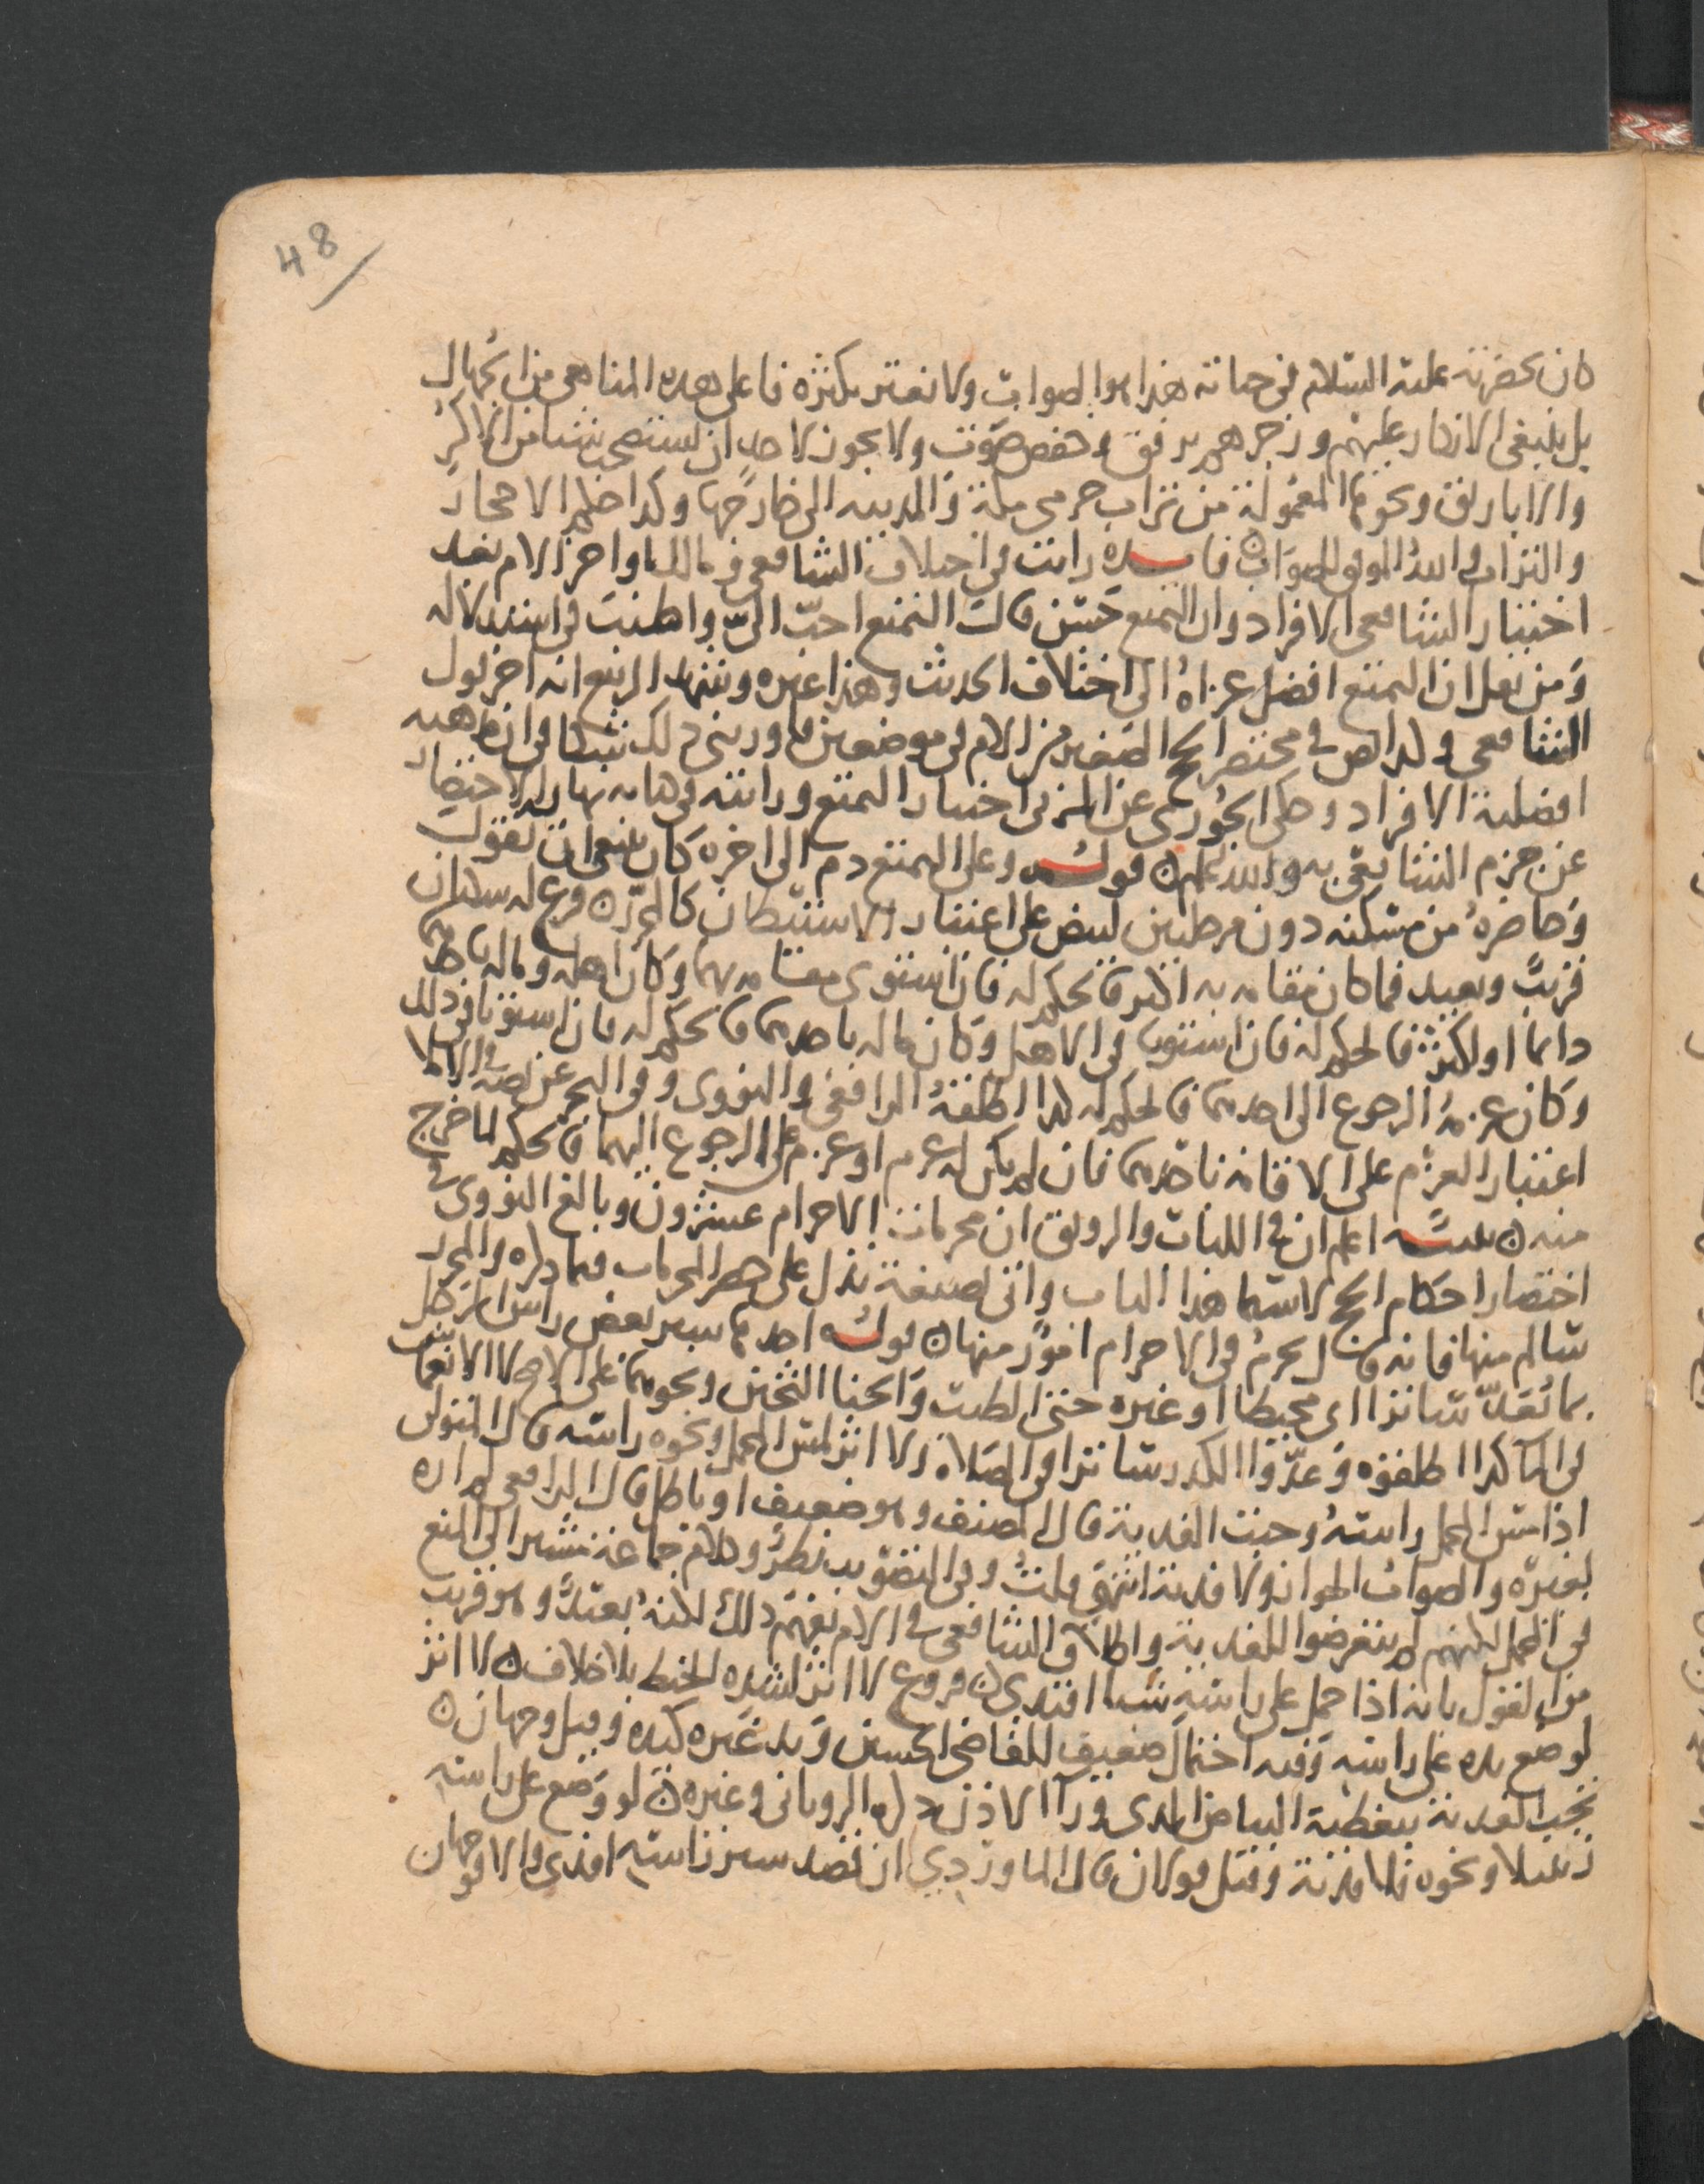 48
كان بحضرته عليه السلام في حياته هذا هو الصواب ولا تغتر بكثرة فاعلى هذه المناهي من الجهال
بل ينبغي الانكار عليهم وزجرهم برفق وخفض صوت ولا يجوز لاحد ان يستصحب شيا من الاكر
والاباريق ونحوهما المعمولة من تراب حرمي مكة والمدينه الى خارجها وكذا حكم الاحجار
والتراب والله الموفق للصواب فايده رايت في اختلاف الشافعي ومالك اواخر الام بعد
اختيار الشافعي الافراد وان التمتع حسن قال التمتع احب الي واطنب في استدلاله
ومن نقل ان التمتع افضل عزاه الى اختلاف الحديث وهذا غيره وشهد الربيع انه اخر قول
الشافعي وكذا نص في مختصر الحج الصغير من الام في موضعين وقد يثير ذلك شكا في ان مذهبه
افضلية الافراد وحكى الجوري عن المزني اختيار التمتع ورايته في نهاية الاختصار
عن جزم الشافعي به والله اعلم قوله وعلى المتمتع دم الى اخره كان ينبغي ان يقول
وحاضره من مسكنه دون مرحلتين لينص على اعتبار الاستيطان كالمحرر فرع له مسكنان
قريب وبعيد فما كان مقامه به اكثر فالحكم له فان استوى مقامه بهما وكان اهله وماله باحدهما
دايما او اكثر فالحكم له فان استويا في الاهل وكان ماله باحدهما فالحكم له فان استويا في ذلك
وكان عزمه الرجوع الى احدهما فالحكم له كذا اطلقه الرافعي والنووي وفي البحر عن نصه في الاملا
اعتبار العزم على الاقامة باحدهما فان لم يكن له عزم او عزم على الرجوع اليهما فالحكم لما خرج
منه تنبيه اعلم ان في اللباب والرونق ان محرمات الاحرام عشرون وبالغ النووي في
اختصار احكام الحج لا سيما هذا الباب واتى بصيغة تدل على حصر المحرمات فيما ذكره والمحرر
سالم منها فانه قال يحرم في الاحرام امور منها قوله احدها ستر بعض راس الرجل
بما يعد ساترا اي محيطا او غيره حتى الطين والحنا الثخين ونحوهما على الاصح لا الانغماس
في الماء كذا اطلقوه وعدوا الكدر ساترا في الصلاة ولا اثر لمس المحمل ونحوه راسه قال المتولي
اذا مس المحمل راسه وجبت الفدية قال المصنف وهو ضعيف او باطل قال الرافعي لم اره
لغيره والصواب الجواز ولا فدية انتهى قلت وفي التصويب نظر وكلام جماعة يشير الى المنع
في الحمل لكنهم لم يتعرضوا للفدية واطلاق الشافعي في الام يفهم ذلك لكنه بعيد وهو قريب
من القول بانه اذا حمل على راسه شيا افتدى فروع لا اثر لشده بالخيط بلا خلاف لا اثر
لوضع يده على راسه وفيه احتمال ضعيف للقاضي الحسين ويد غيره كيده وقيل وجهان
تجب الفدية بتغطية البياض الذي ورا الاذن ذكره الروياني وغيره لو وضع على راسه
زنبيلا ونحوه فلا فدية وقيل قولان قال الماوردي ان قصد ستر راسه افتدى والا فوجهان